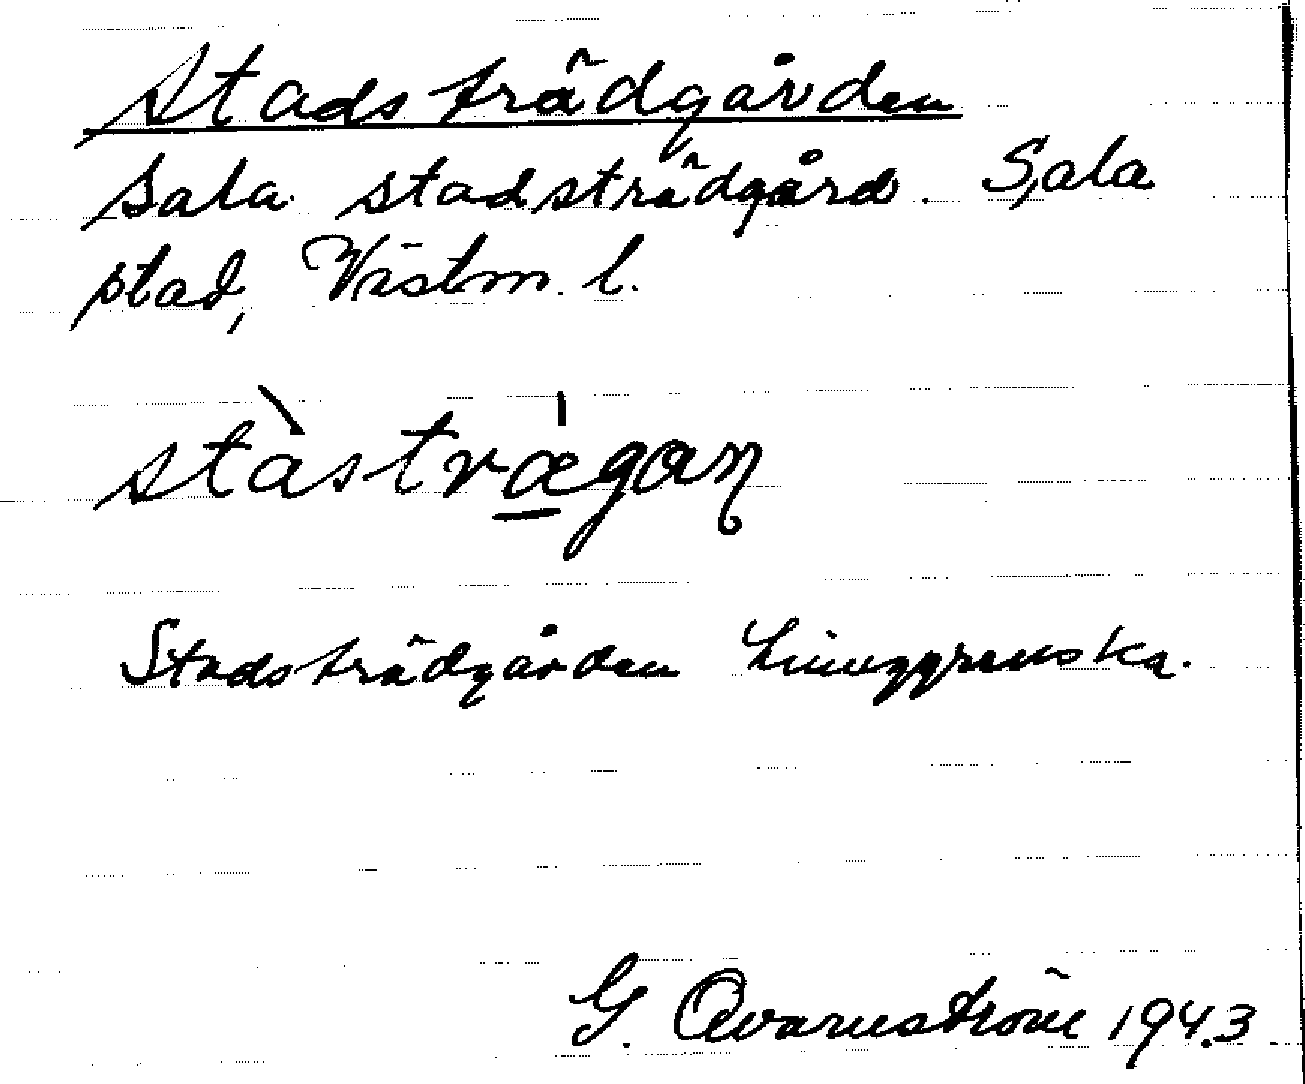 Stadsträdgården
Sala stadsträdgård. Sala
stad, Västm. l.
stàstræ̲̍gaɳ
Stadsträdgården
G. Qvarnström 1943